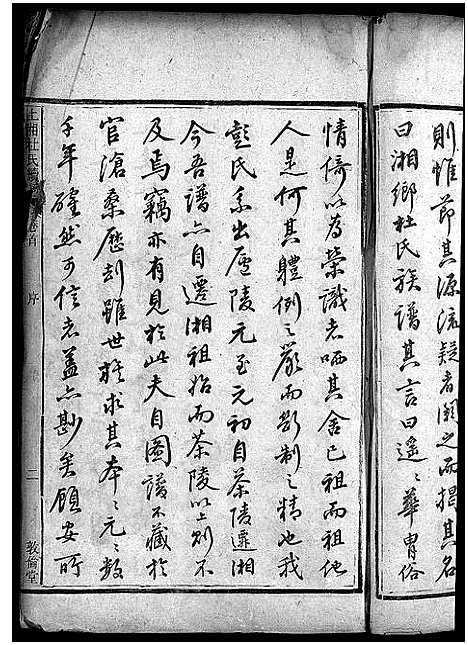 則惟節其源流疑者闕之而揭其名
曰湘鄉杜氏族譜其言曰遥〻華胄俗
情倚以為榮識者哂其舍已祖而祖他
人是何其體例之嚴而斷制之精也我
彭氏系出廬陵元至元初自茶陵遷湘
今吾譜亦自遷湘祖始而茶陵以上則不
及焉竊亦有見於此夫自圖譜不藏於
官滄桑歷刦雖世族求其本〻元〻数
千年確然可信者蓋亦尠矣顧安所
上湘杜氏續 卷首 序 二 敦倫堂